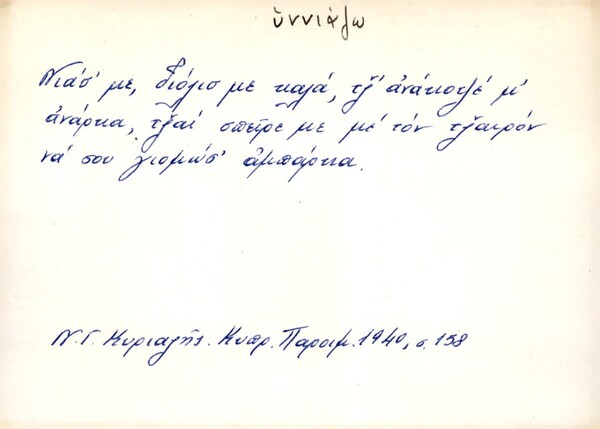 ὑννιάζω
Νιάσ' με, διόλισ με καλά, τζ̌' ἀνάκοψέ μ'
ἀνάρκα, τζ̌αί σπεῖρε με μέ τόν τζ̌αιρόν
νά σου γιομώσ' ἀμπάρκα.
Ν. Γ. Κυριαζῆς. Κυπρ. Παροιμ. 1940, σ. 158